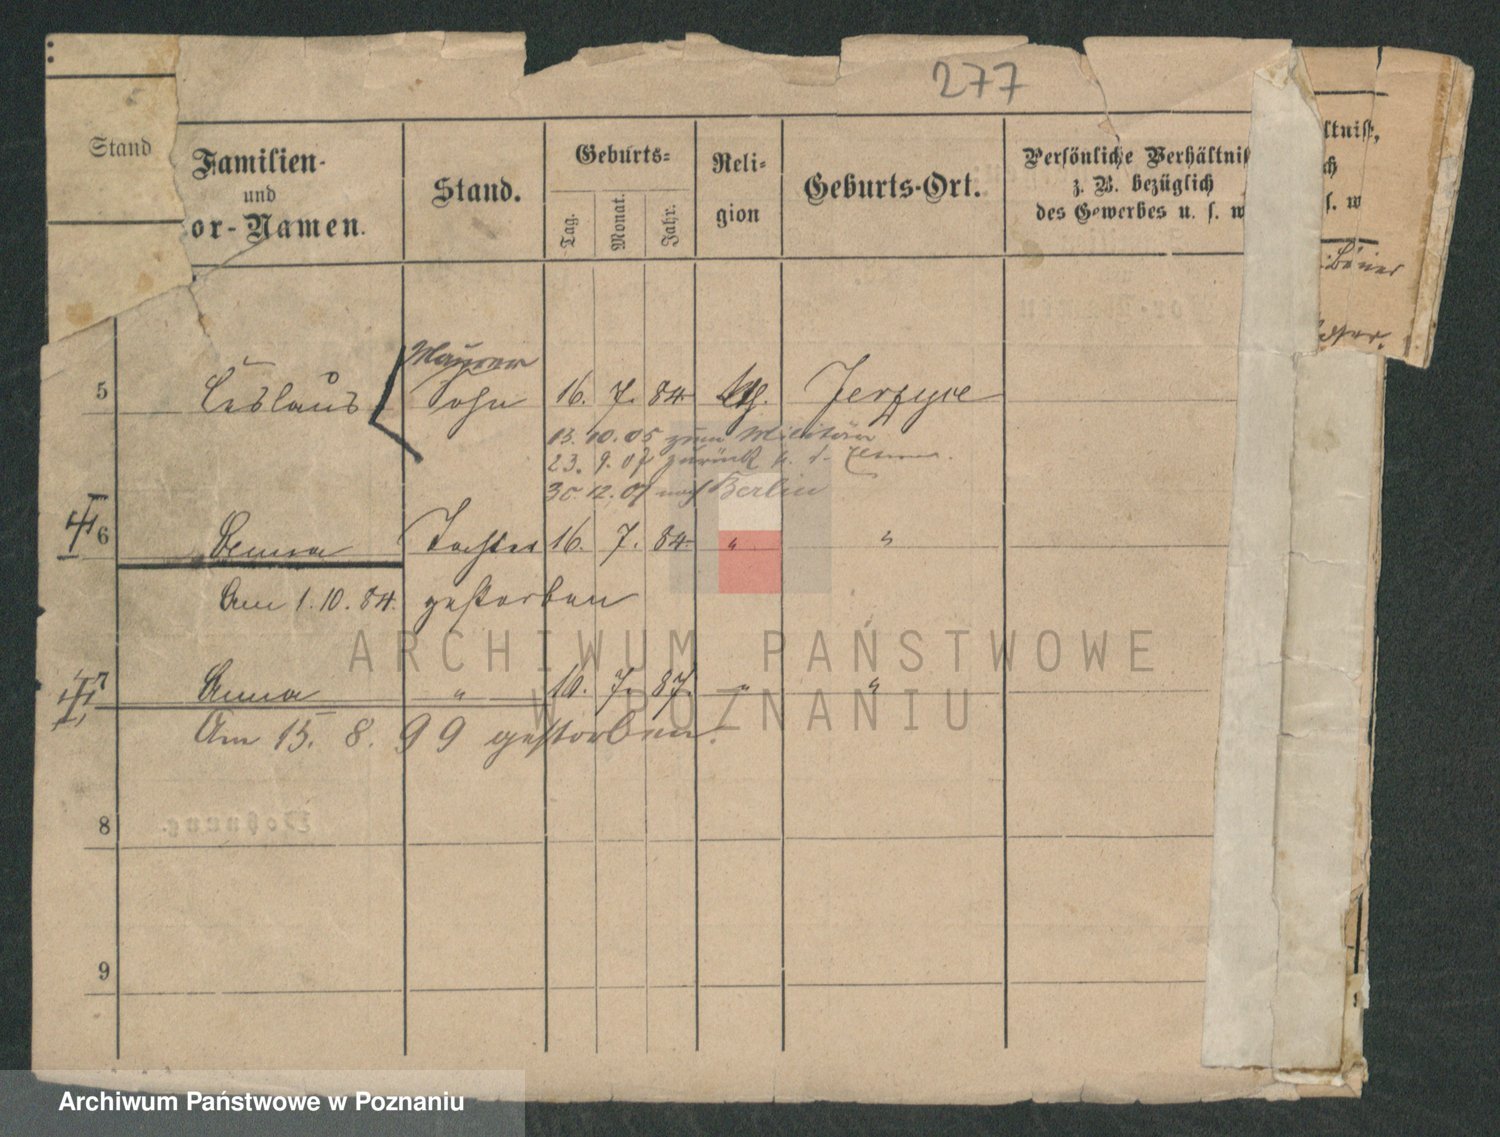 277
Stand
Familien-
und
or-Namen.
Stand.
Geburts-
Tag.
Monat.
Jahr.
Reli-
gion
Geburts-Ort.
Persönliche Verhältniss
z. B. bezüglich
des Gewerbes u. s. w
ltniss,
ch
s. w
Maurer
5 Ceslaus Sohn 16. 7. 84 Jerzyce
13. 10. 05 zum Militär
23. 9. 07 zurück z. d. Eltern.
30. 12. 07 nach Berlin
6 Anna Tochter 16. 7. 84 " "
Am 1. 10. 84. gestorben
7 Anna " 10. 7. 87. " "
Am 15. 8. 99 gestorben.
8
9
ARCHIWUM PAŃSTWOWE
W POZNANIU
Archiwum Państwowe w Poznaniu